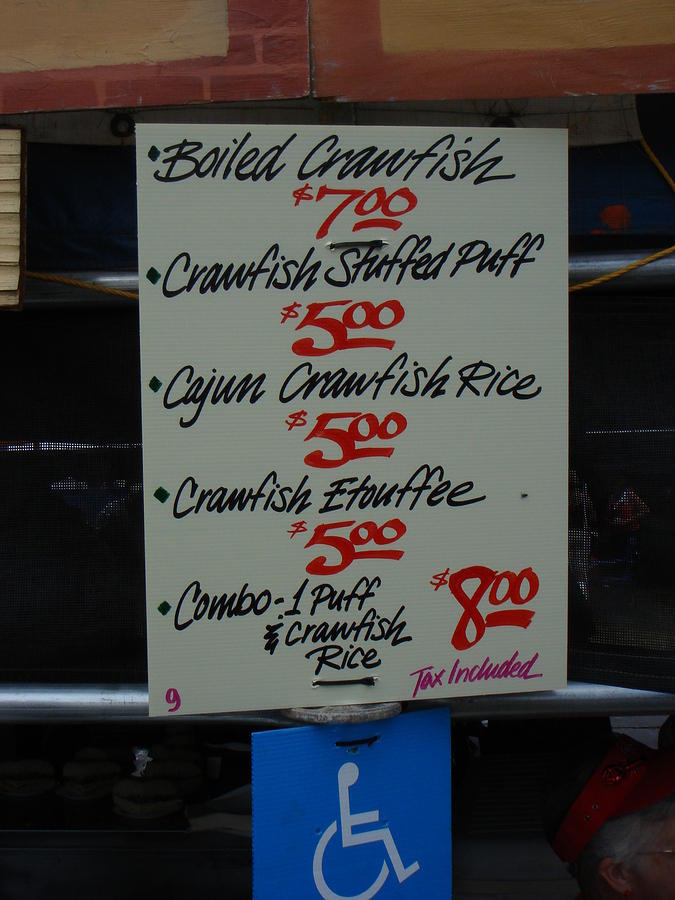 •Boiled Crawfish
$7.00
•Crawfish Stuffed Puff
$5.00
•Cajun Crawfish Rice
$5.00
•Crawfish Etouffee
$5.00
•Combo-1 Puff
& Crawfish
Rice
$8.00
Tax Included
9